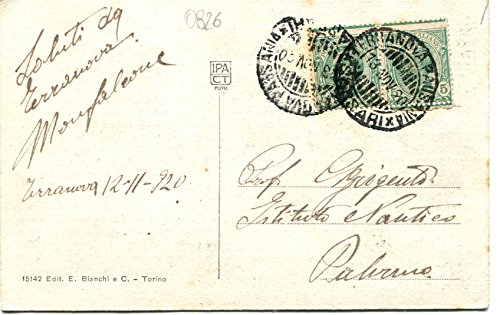 0826
Saluti da
Terranova
Monfalcone
Terranova 12-11-920
15142 Edit. E. Bianchi e C. - Torino
IPA
CT
FOTO
TERRANOVA PAUSANIA
SASSARI
5
5
Prof. Grigento
Istituto Nautico
Palermo